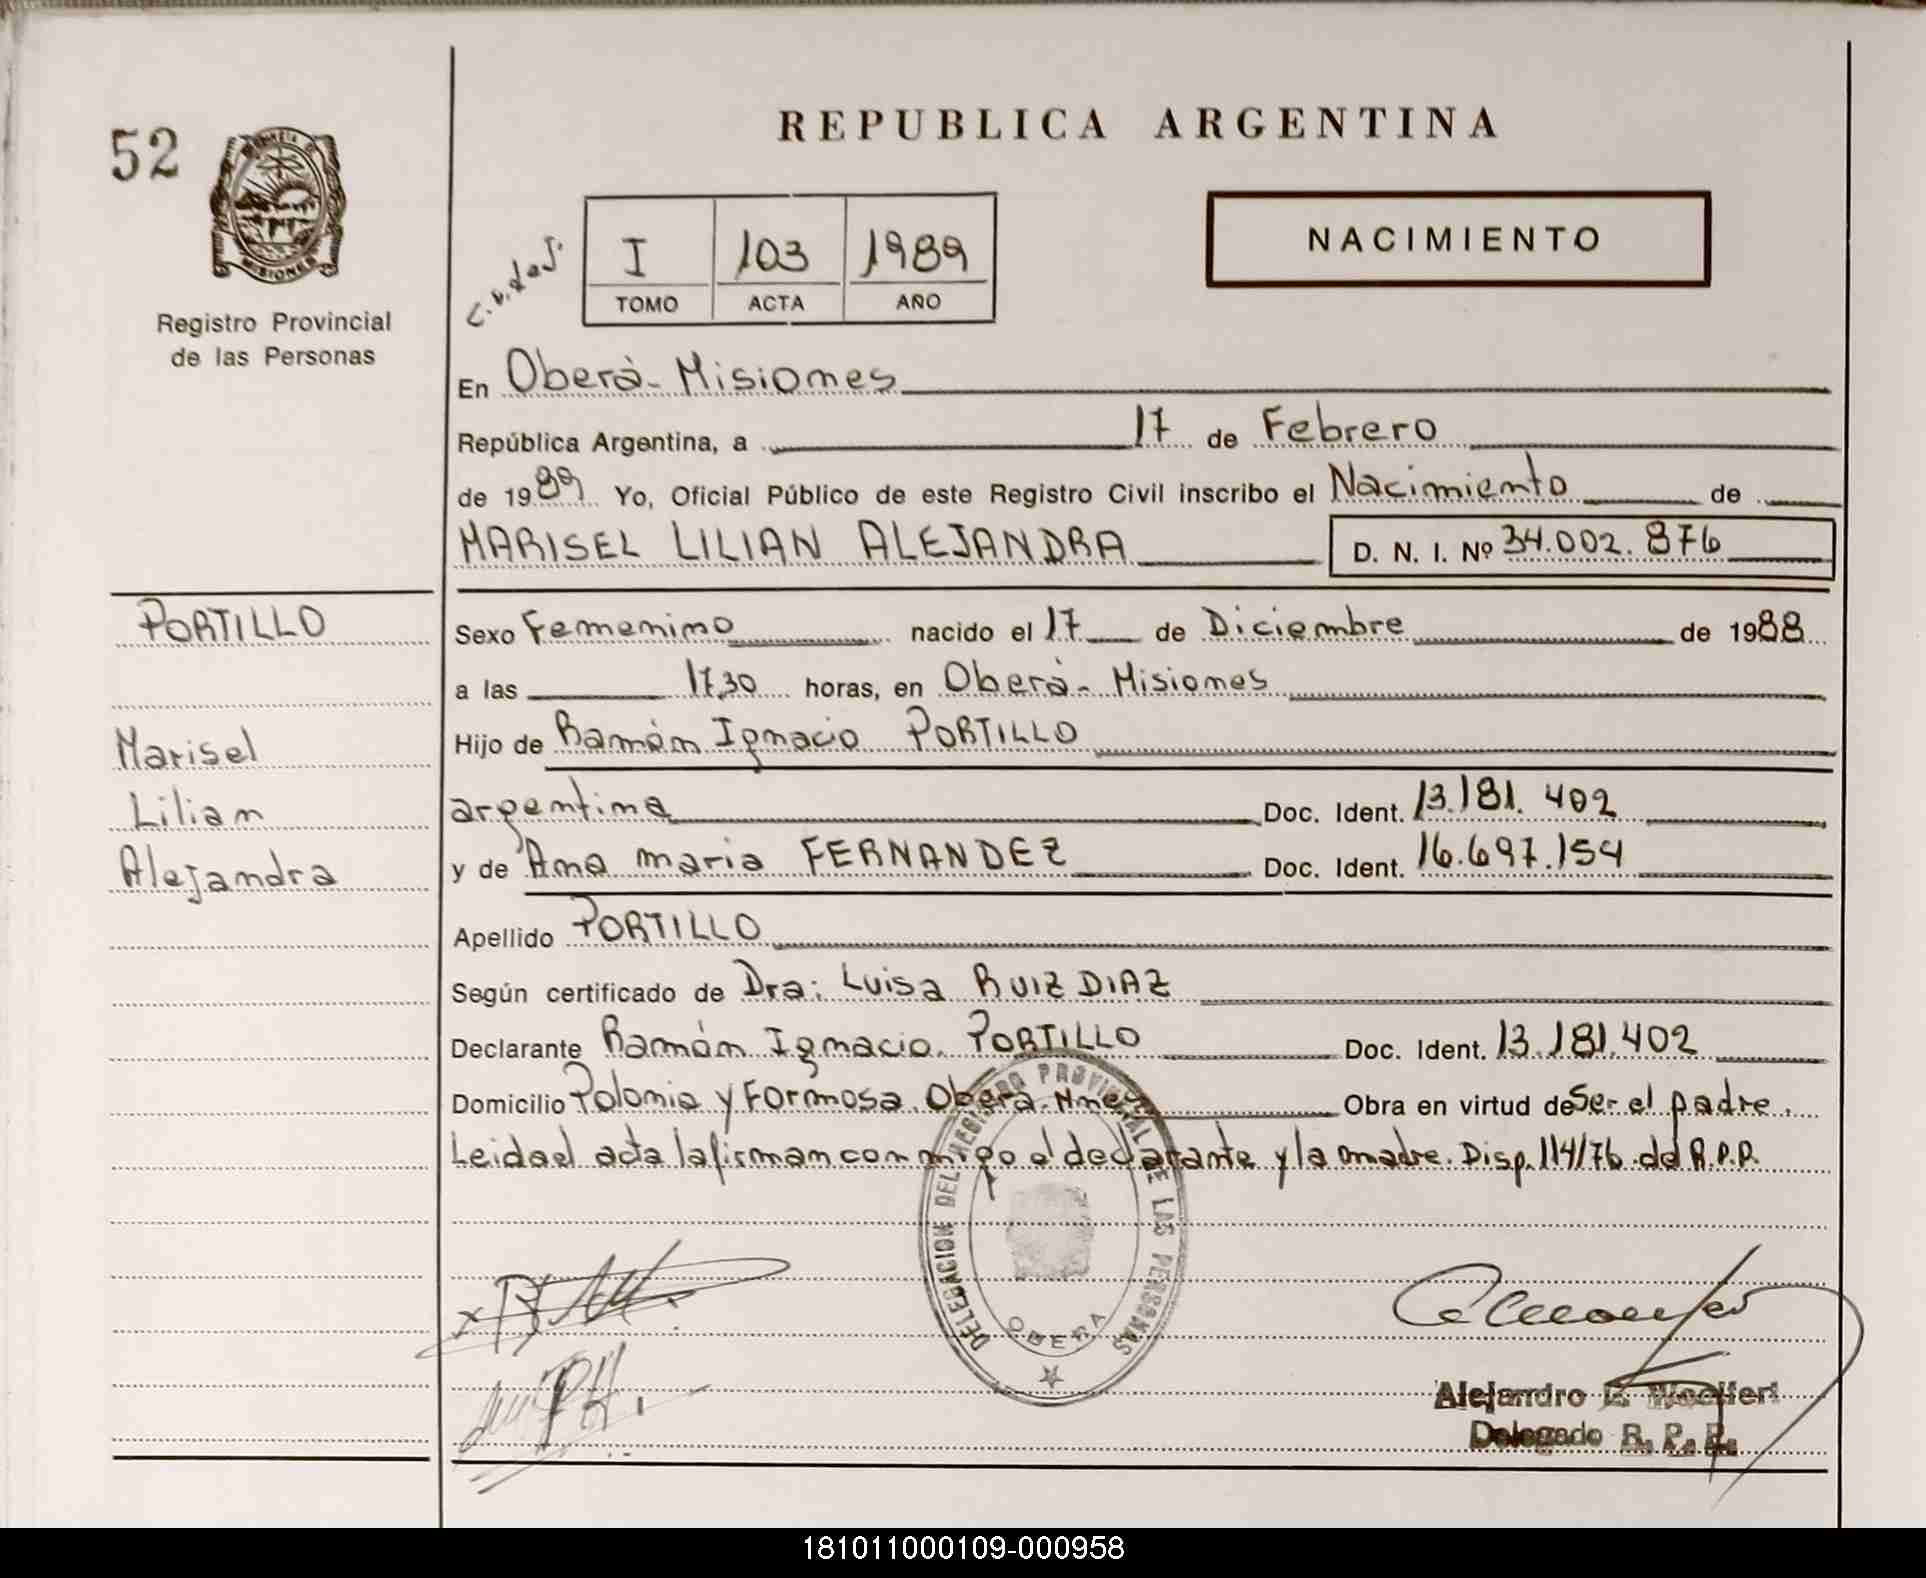 REPUBLICA ARGENTINA
52
PROVINCIA D
MISIONES
Registro Provincial
de las Personas
I 103 1989
TOMO ACTA AÑO
NACIMIENTO
En Oberá - Misiones
República Argentina, a 17 de Febrero
de 1989 Yo, Oficial Público de este Registro Civil inscribo el Nacimiento de
MARISEL LILIAN ALEJANDRA D. N. I. Nº 34.002.876
PORTILLO
Sexo Femenino nacido el 17 de Diciembre de 1988
a las 17,30 horas, en Oberá - Misiones
Marisel
Hijo de Ramón Ignacio PORTILLO
Lilian
argentina Doc. Ident. 13.181.402
Alejandra
y de Ana maria FERNANDEZ Doc. Ident. 16.697.154
Apellido PORTILLO
Según certificado de Dra: Luisa RUIZ DIAZ
Declarante Ramón Ignacio PORTILLO Doc. Ident. 13.181.402
Domicilio Polonia y Formosa. Oberá. Mnes Obra en virtud de Ser el padre.
Leida el acta la firman conmigo el declarante y la madre. Disp. 114/76 del R.P.P.
DELEGACION DEL REGISTRO PROVINCIAL DE LAS PERSONAS
OBERA
Alejandro
Delegado R. P. P.
181011000109-000958